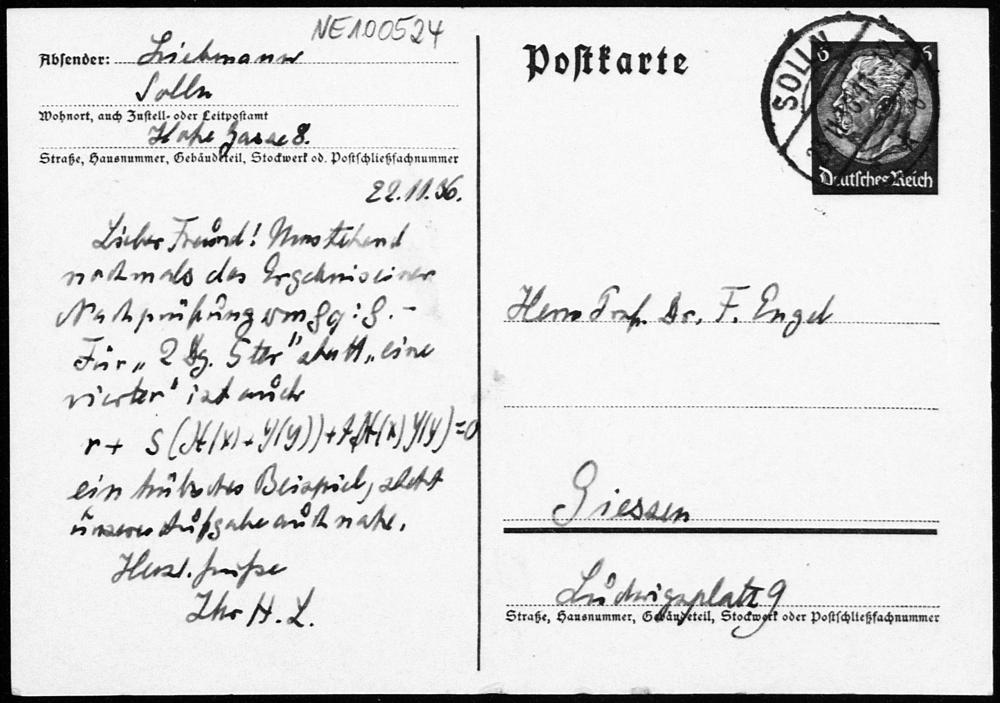 NE100524
Absender: Liebmann
Solln
Wohnort, auch Zustell- oder Leitpostamt
Hofe Gasse 8.
Straße, Hausnummer, Gebäudeteil, Stockwerk od. Postschließfachnummer
22.11.36.
Lieber Freund! Umstehend
nochmals das Ergebnis einer
Nachprüfung vom
Für „2 Bg. 5ter" statt „eine
vierter" ist auch
r + s(X(x) + Y(y)) + t X(x) Y(y) = 0
ein hübsches Beispiel, steht
unserer Aufgabe auch nahe.
Herzl. Grüsse
Ihr H. L.
Postkarte
SOLLN
6 6
Deutsches Reich
Herrn Prof. Dr. F. Engel
Giessen
Ludwigsplatz 9
Straße, Hausnummer, Gebäudeteil, Stockwerk oder Postschließfachnummer